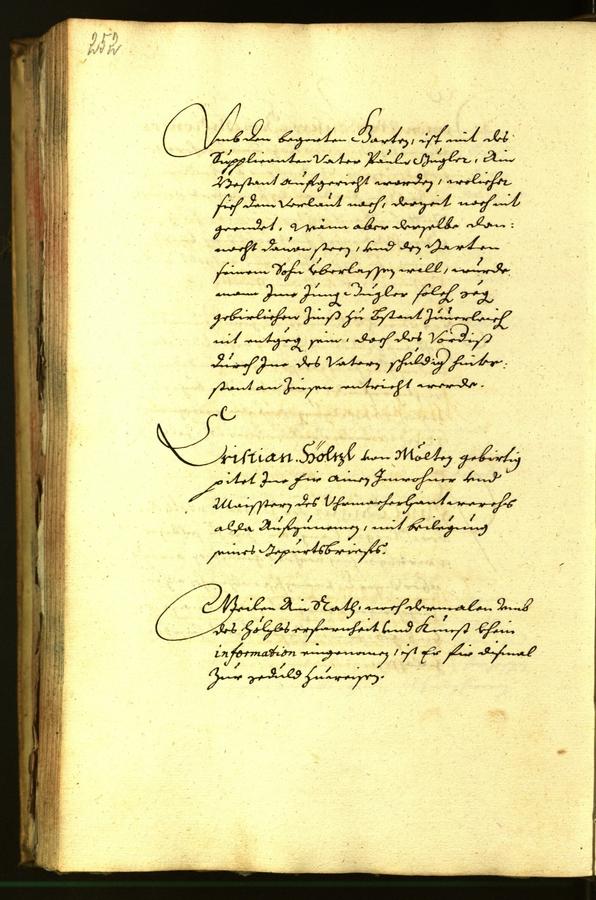 252
Umb den begerten Garten, ist mit des
Supplicanten Vater Paulr Gugler, Ain
Bestant aufgericht worden, welicher
sich dem Verlaut nach, derzeit noch nit
geendet, Wann aber derselbe dan:
nocht dauon steen, und den Garten
seinem Sohn überlassen will, wurde
man Ime Jung Gugler solch
gebirlichen Zinß zu Bstant Zuuerleich
nit entgeg sein, doch das Vordist
durch Ine des Vatern schuldig hinter:
stant an Zinsen entricht werde.
Cristian Höltzl von Mölten gebirtig
pitet Ine für ainen Inwohner und
Maistern des Uhrmacherhantwerchs
alda Aufzunemen, mit beilegung
seines Gepurtsbriefs.
Weilen Ain Rath, noch dermalen umb
des Höltzls erfarnheit und Kunst khein
information eingenomen, ist Er für dismal
Zur geduld Zuweisen.